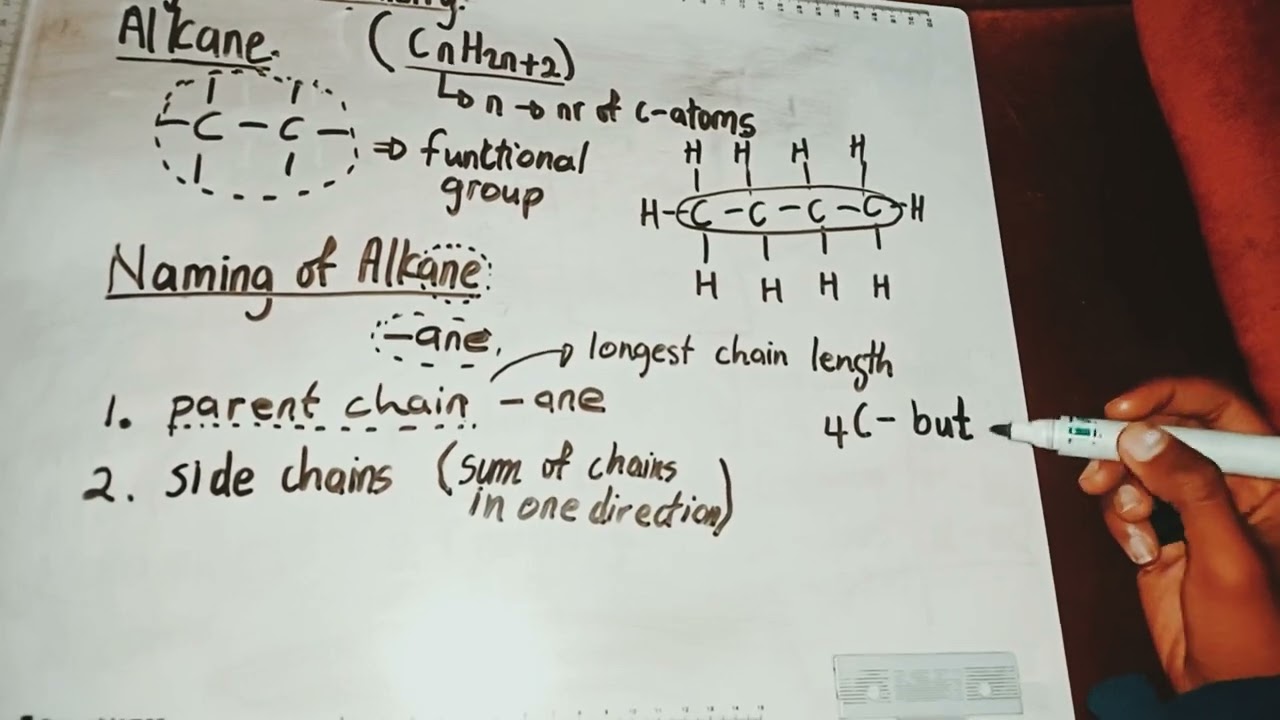 Alkane. (CnH2n+2)
↳ n → nr of C-atoms
- C - C - ⇒ functional
group
H H H H
H - C - C - C - C - H
H H H H
Naming of Alkane:
-ane.
→ longest chain length
1. parent chain -ane
4C - but
2. side chains (sum of chains
in one direction)